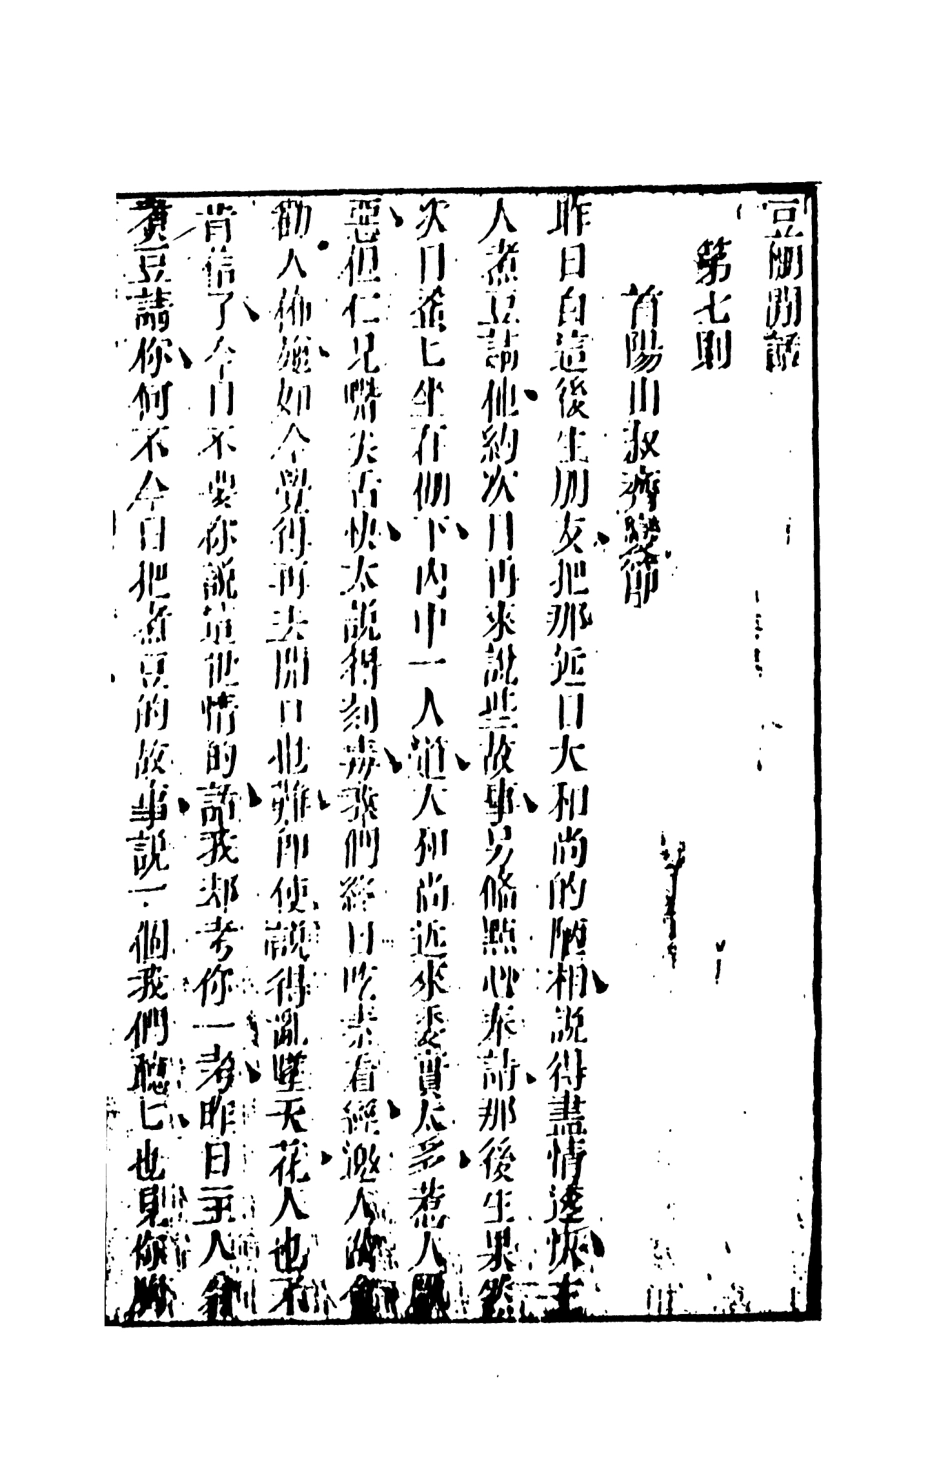 豆棚閒話
第七則
首陽山叔齊變節
昨日自這後生朋友把那近日大和尚的陋相說得盡情透快主
人煮豆請他約次日再來說些故事另備點心奉請那後生果然
次日釜匕坐在棚下內中一人道大和尚近來委實太多惹人厭
惡但仁兄嚼夫舌快太說得刻毒我們終日吃素看經邀人
勸人佈施如今覺得再去開口也難即使說得亂墜天花人也不
肯信了今日不要你說這世情的話我却考你一考昨日主人
煮豆請你何不今日把煮豆的故事說一個我們聽匕也見你胸